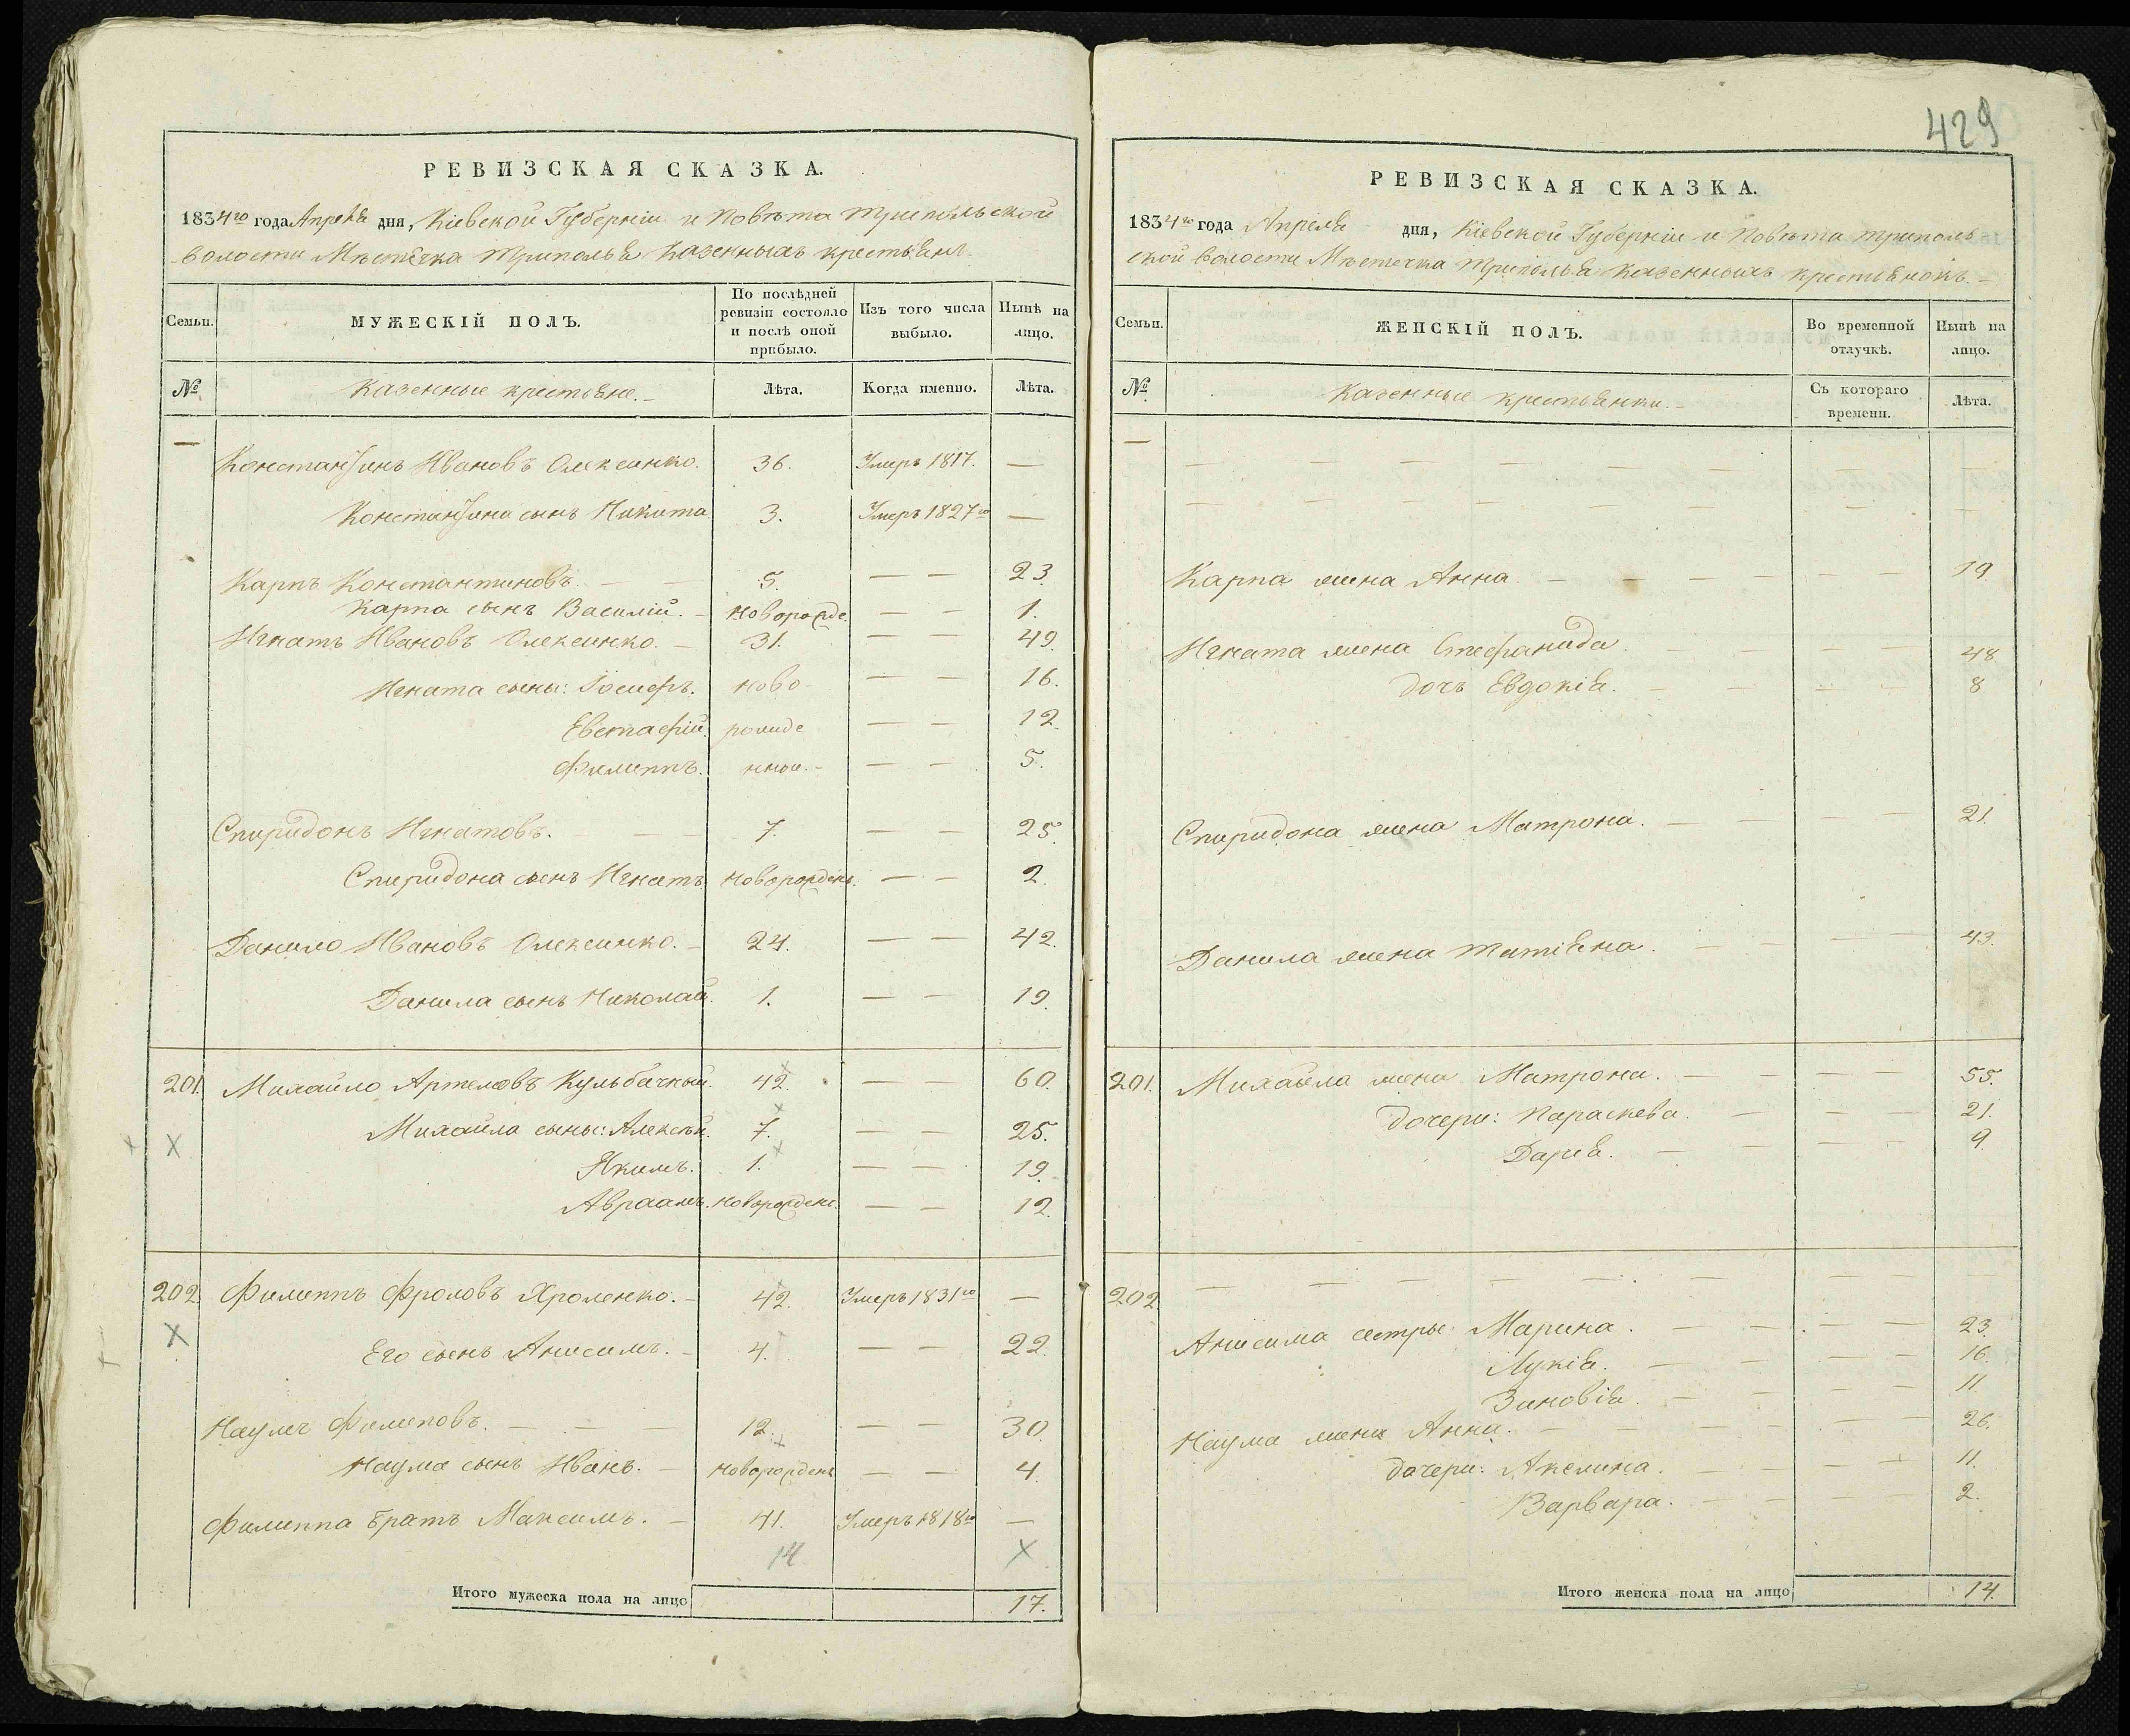 429
РЕВИЗСКАЯ СКАЗКА.
1834го года Апреля дня, Кіевской Губерніи и Повѣта Трипольской
волости Мѣстечка Триполья Казенныхъ крестьянъ.
Семьи.
МУЖЕСКІЙ ПОЛЪ.
По послѣдней ревизіи состояло и послѣ оной прибыло.
Изъ того числа выбыло.
Нынѣ на лицо.
№
Казенные крестьяне.
Лѣта.
Когда именно.
Лѣта.
Константинъ Ивановъ Олексинко. 36. Умеръ 1817. —
Константина сынъ Никита 3. Умеръ 1827го —
Карпъ Константиновъ. — — 5. — — 23.
Карпа сынъ Василій. — Новорожде. — — 1.
Игнатъ Ивановъ Олексинко. — 31. — — 49.
Игната сыны: Іосифъ. ново — — 16.
Евстафій. рожде — — 12.
Филиппъ. нныи. — — — 5.
Спиридонъ Игнатовъ. — — 7. — — 25.
Спиридона сынъ Игнатъ Новорожденъ. — — 2.
Данило Ивановъ Олексинко. — 24. — — 42.
Данила сынъ Николай. 1. — — 19.
201. Михайло Артемовъ Кульбачный. 42. — — 60.
Х Михаила сыны: Алексѣй. 7. — — 25.
Якимъ. 1. — — 19.
Авраамъ. Новорожден. — — 12.
202. Филиппъ Фроловъ Хроленко. — 42. Умеръ 1831го —
Х Его сынъ Анисимъ. — 4. — — 22.
Наумъ Филиповъ. — — — 12. — — 30.
Наума сынъ Иванъ. — Новорожденъ — — 4.
Филиппа братъ Максимъ. — 41. Умеръ 1818го —
14 Х
Итого мужеска пола на лицо 17.
РЕВИЗСКАЯ СКАЗКА.
1834го года Апреля дня, Кіевской Губерніи и Повѣта Триполь
ской волости Мѣстечка Триполья Казенныхъ крестьянокъ. —
Семьи.
ЖЕНСКІЙ ПОЛЪ.
Во временной отлучкѣ.
Нынѣ на лицо.
№
Казенные крестьянки. —
Съ котораго времени.
Лѣта.
Карпа жена Анна. 19
Игната жена Стефанида. 48
дочь Евдокія. 8
Спиридона жена Матрона. 21.
Данила жена Татіяна. 43.
201. Михайла жена Матрона. 55.
дочери: Параскева. 21.
Дарія. 9.
202
Анисима сестры: Марина. 23.
Лукія. 16.
Зиновія. 11.
Наума жена Анна. 26.
дочери: Акелина. 11.
Варвара. 2.
Итого женска пола на лицо 14.